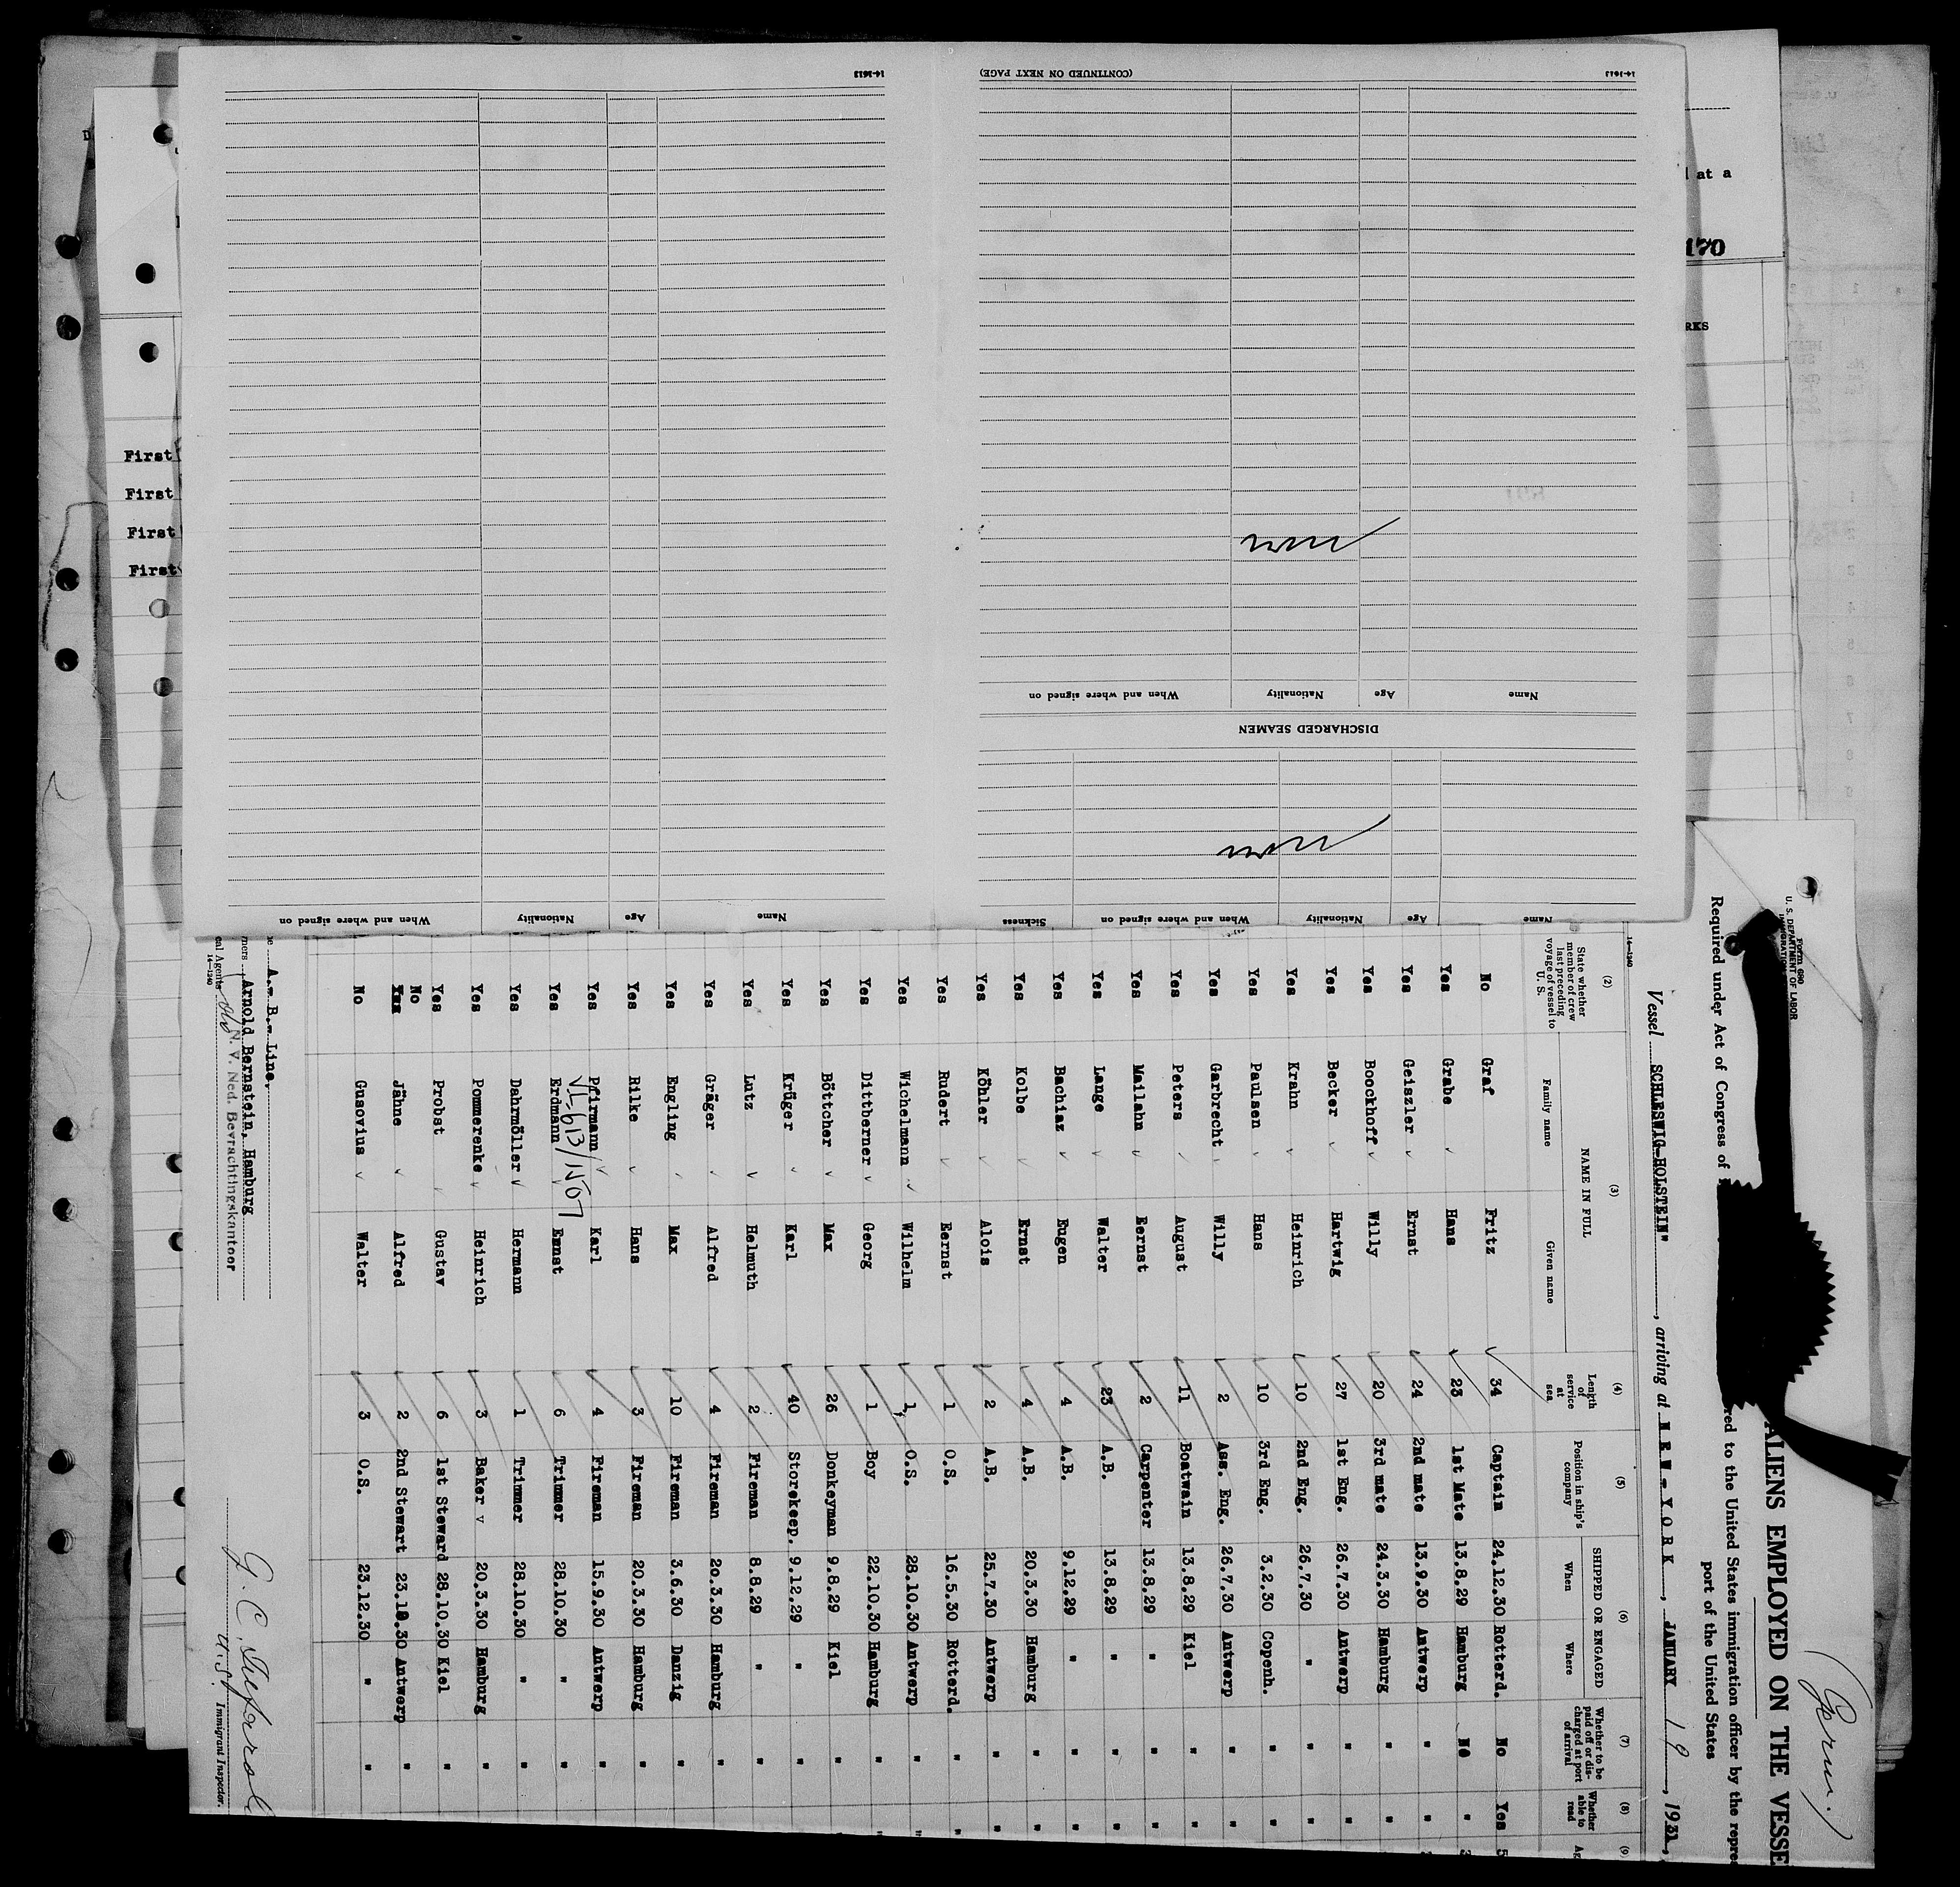 14-1613
(CONTINUED ON NEXT PAGE)
14-1613
Name
Age
Nationality
When and where signed on
DISCHARGED SEAMEN
Name
Age
Nationality
When and where signed on
Sickness
Name
Age
Nationality
When and where signed on
at a
170
RKS
First
First
First
First
(Germ.)
Form 680
U. S. DEPARTMENT OF LABOR
ALIENS EMPLOYED ON THE VESSE
Required under Act of Congress of
red to the United States immigration officer by the repres
port of the United States
Vessel SCHLESWIG-HOLSTEIN", arriving at NEW-YORK, JANUARY 19, 1931,
14-1240
(2) (3) (4) (5) (6) (7) (8) (9)
State whether member of crew last preceding voyage of vessel to U. S.
NAME IN FULL
Family name Given name
Length of service at sea
Position in ship's company
SHIPPED OR ENGAGED
When Where
Whether to be paid off or discharged at port of arrival
Whether able to read
Ag
No Graf Fritz 34 Captain 24.12.30 Rotterd. No Yes 5
Yes Grabe Hans 23 1st Mate 13.8.29 Hamburg No "
Yes Geiszler Ernst 24 2nd mate 13.9.30 Antwerp " "
Yes Boockhoff Willy 20 3rd mate 24.3.30 Hamburg " "
Yes Becker Hartwig 27 1st Eng. 26.7.30 Antwerp " "
Yes Krahn Heinrich 10 2nd Eng. 26.7.30 " " "
Yes Paulsen Hans 10 3rd Eng. 3.2.30 Copenh. " "
Yes Garbrecht Willy 2 Ass. Eng. 26.7.30 Antwerp " "
Yes Peters August 11 Boatwain 13.8.29 Kiel " "
Yes Mailahn Bernst 2 Carpenter 13.8.29 " " "
Yes Lange Walter 23 A.B. 13.8.29 " " "
Yes Bachiaz Eugen 4 A.B. 9.12.29 " " "
Yes Kolbe Ernst 4 A.B. 20.3.30 Hamburg " "
Yes Köhler Alois 2 A.B. 25.7.30 Antwerp " "
Yes Rudert Bernst 1 O.S. 16.5.30 Rotterd. " "
Yes Wichelmann Wilhelm 1 O.S. 28.10.30 Antwerp " "
Yes Dittberner Georg 1 Boy 22.10.30 Hamburg " "
Yes Böttcher Max 26 Donkeyman 9.8.29 Kiel "
Yes Krüger Karl 40 Storekeep. 9.12.29 " "
Yes Lutz Helmuth 2 Fireman 8.8.29 " "
Yes Gräger Alfred 4 Fireman 2o.3.30 Hamburg "
Yes Engling Max 10 Fireman 3.6.30 Danzig "
Yes Rilke Hans 3 Fireman 20.3.30 Hamburg "
Yes Pfirmann Karl 4 Fireman 15.9.30 Antwerp "
VI-613/1507
Yes Erdmann Ernst 6 Trimmer 28.10.30 " "
Yes Dahrmöller Hermann 1 Trimmer 28.10.30 " "
Yes Pommerenke Heinrich 3 Baker 20.3.30 Hamburg "
Yes Probst Gustav 6 1st Steward 28.10.30 Kiel "
No Jähne Alfred 2 2nd Stewart 23.12.30 Antwerp "
No Gusovius Walter 3 O.S. 23.12.30 " "
A. B. Line,
Arnold Bernstein, Hamburg
cal Agents N. V. Ned. Bevrachtingskantoor
14-1240
Immigrant Inspector.